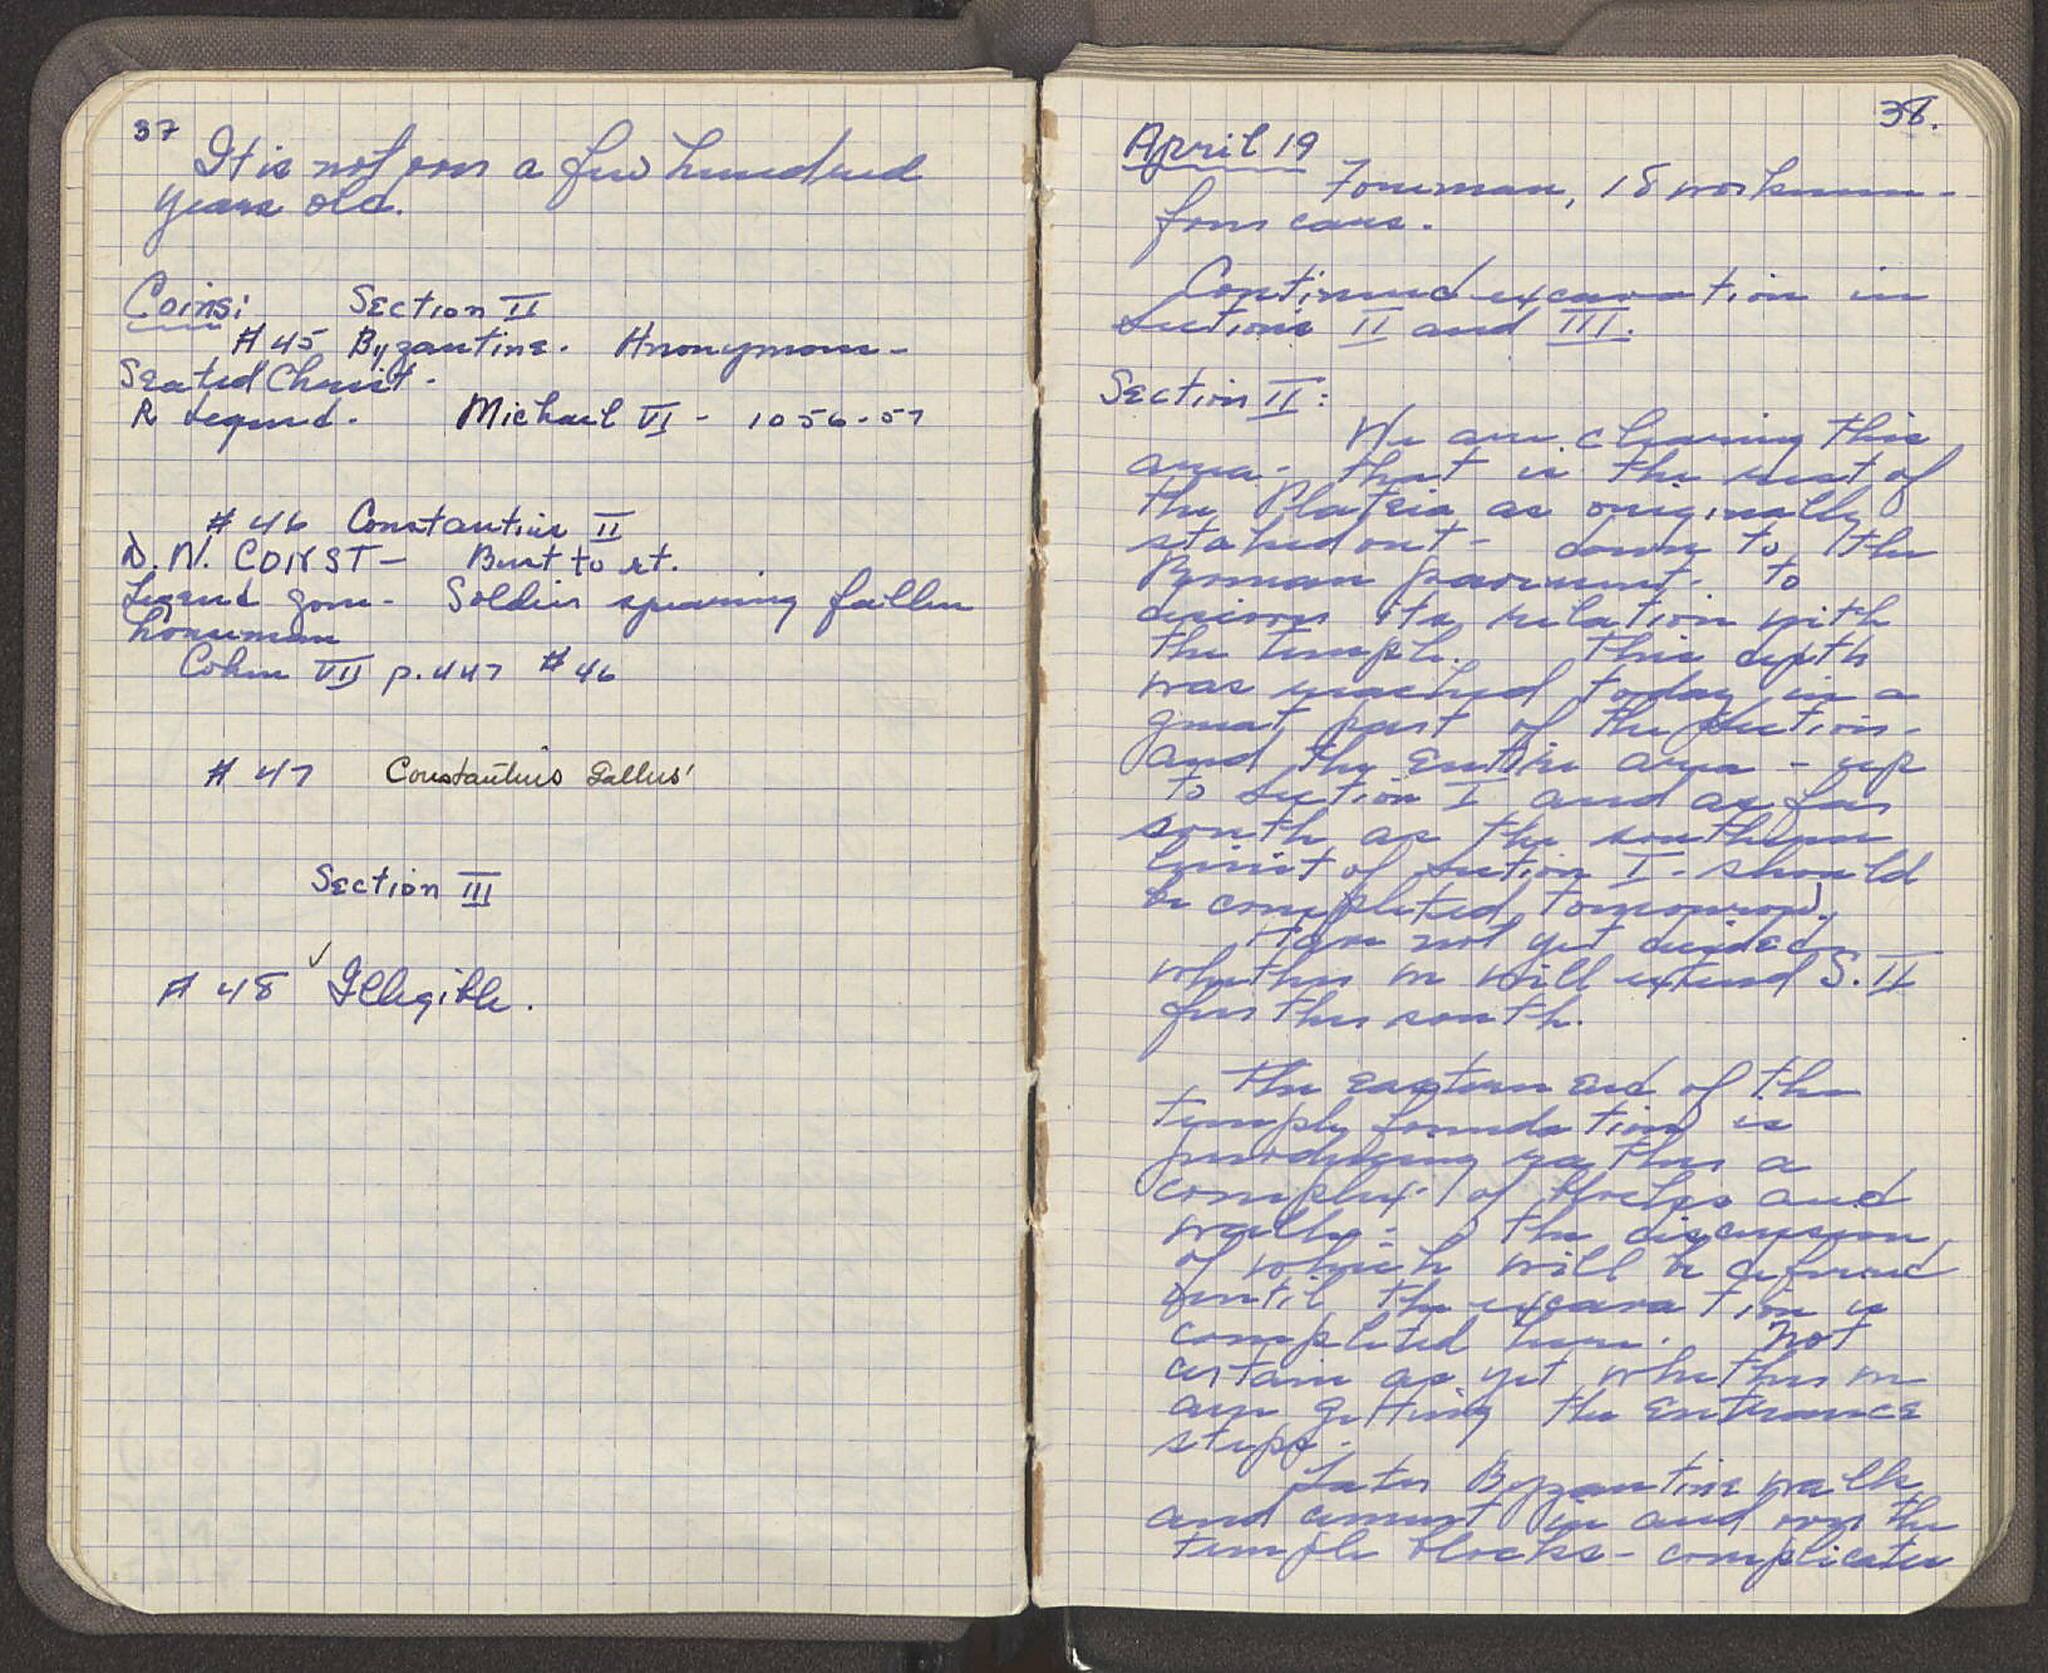 37
It is not over a few hundred
years old.
Coins: Section II
# 45 Byzantine. Anonymous -
Seated Christ.
R Legend. Michael VI - 1056-57
# 46 Constantius II
D. N. CONST - Bust to rt.
Legend gone. Soldier spearing fallen
horseman
Cohen VII p. 447 # 46
# 47 Constantius Gallus
Section III
✓
# 48 Illegible.
38.
April 19
Foreman, 18 workmen -
four cars.
Continued excavation in
Sections II and III.
Section II:
We are clearing this
area - that is the rest of
the Plateia as originally
staked out - down to the
Roman pavement. to
discover its relation with
the temple. This depth
was reached today in a
great part of the section -
and the entire area - up
to Section I and as far
south as the southern
limit of Section I - should
be completed tomorrow.
Have not yet decided
whether we will extend S. II
further south.
The eastern end of the
temple foundation is
producing rather a
complex of blocks and
walls - the discussion
of which will be deferred
until the excavation is
completed here. Not
certain as yet whether we
are getting the entrance
steps.
Later Byzantine walls
and cement in and over the
temple blocks - complicates